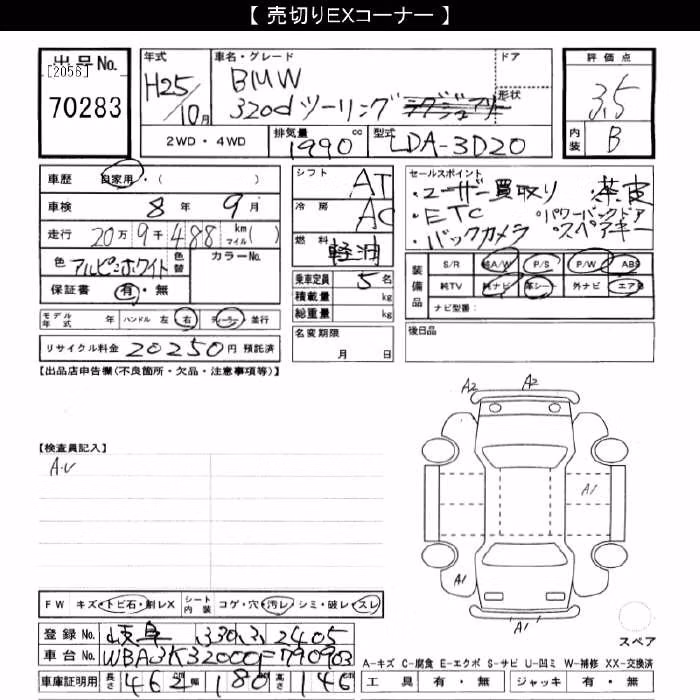 【 売切りEXコーナー 】
出品No.
[2056]
70283
年式
H25/10月
車名・グレード
BMW
320d ツーリング
ドア
形状
2WD・4WD
排気量 1990 cc
型式 LDA-3D20
評価点
3.5
内装 B
車歴 自家用・( )
車検 8年 9月
走行 20万9千488 km(マイル)
色 アルピンホワイト 色替 カラーNo.
保証書 有・無
モデル年式 年 ハンドル 左 右 ディーラー 並行
リサイクル料金 20250円 預託済
シフト AT
冷房 AC
燃料 軽油
乗車定員 5名
積載量 kg
総重量 kg
名変期限
月 日
セールスポイント
・ユーザー買取り ・革
・ETC ・パワーバックドア
・バックカメラ ・スペアキー
装備品
S/R 純A/W P/S P/W ABS
純TV 純ナビ 革シート 外ナビ エアB
ナビ型番:
後日品
【出品店申告欄(不良箇所・欠品・注意事項等)】
【検査員記入】
A.U
A2 A2
A1
A1
A1
スペア
FW キズ・トビ石・割レX シート内装 コゲ・穴・汚レ・シミ・破レ・スレ
登録No. 岐阜 330 る 2405
車台No. WBA3K32000F790903
車庫証明用 長さ 462cm 幅 180cm 高さ 146cm
A-キズ C-腐食 E-エクボ S-サビ U-凹ミ W-補修 XX-交換済
工具 有・無 ジャッキ 有・無